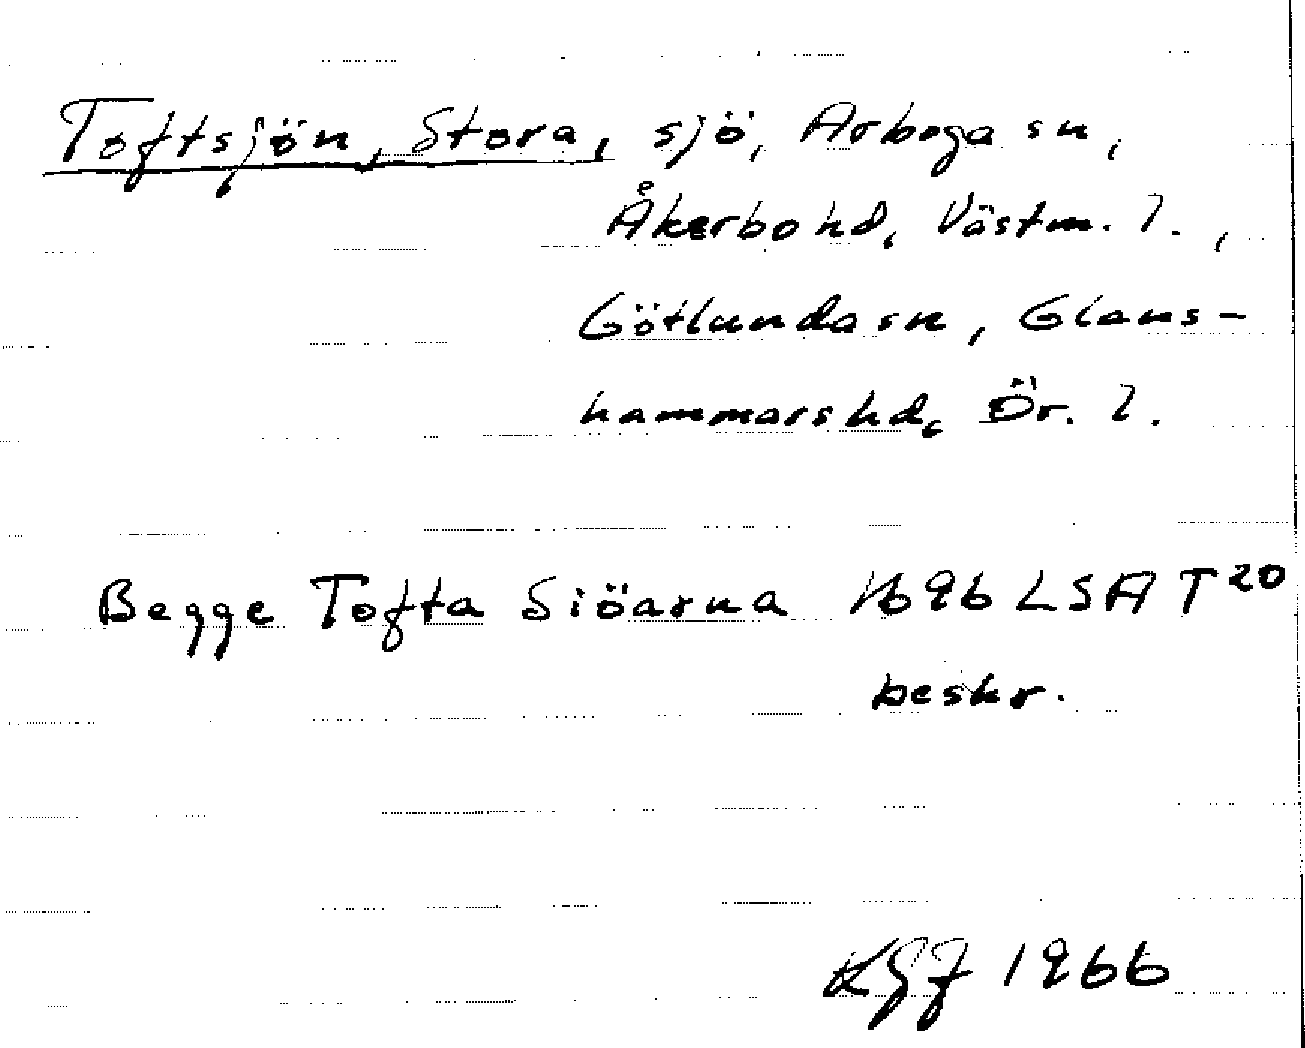 Toftsjön, Stora, sjö, Arboga sn,
Åkerbo hd, Västm. l.,
Götlunda sn, Glans-
hammars hd, Ör. l.
Begge Tofta Siöarna 1696 LSA T20
beskr.
KGJ 1966